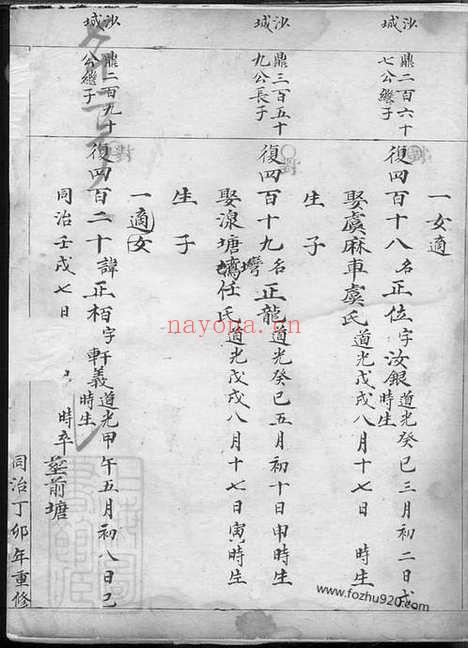 沙城
鼎二百六十七公繼子
一女適
復四百十八名正位字汝銀道光癸巳三月初二日戌時生
娶虞麻車虞氏道光戊戌八月十七日 時生
生子
沙城
鼎三百五十九公長子
復四百十九名正龍道光癸巳五月初十日申時生
娶湶塘灣任氏道光戊戌八月十七日寅時生
生子
一適女
沙城
鼎二百九十公繼子
復四百二十諱正栢字軒義道光甲午五月初八日巳時生
同治壬戌七日 時卒墓前塘
同治丁卯年重修
nayona.cn
www.fozhu920.com